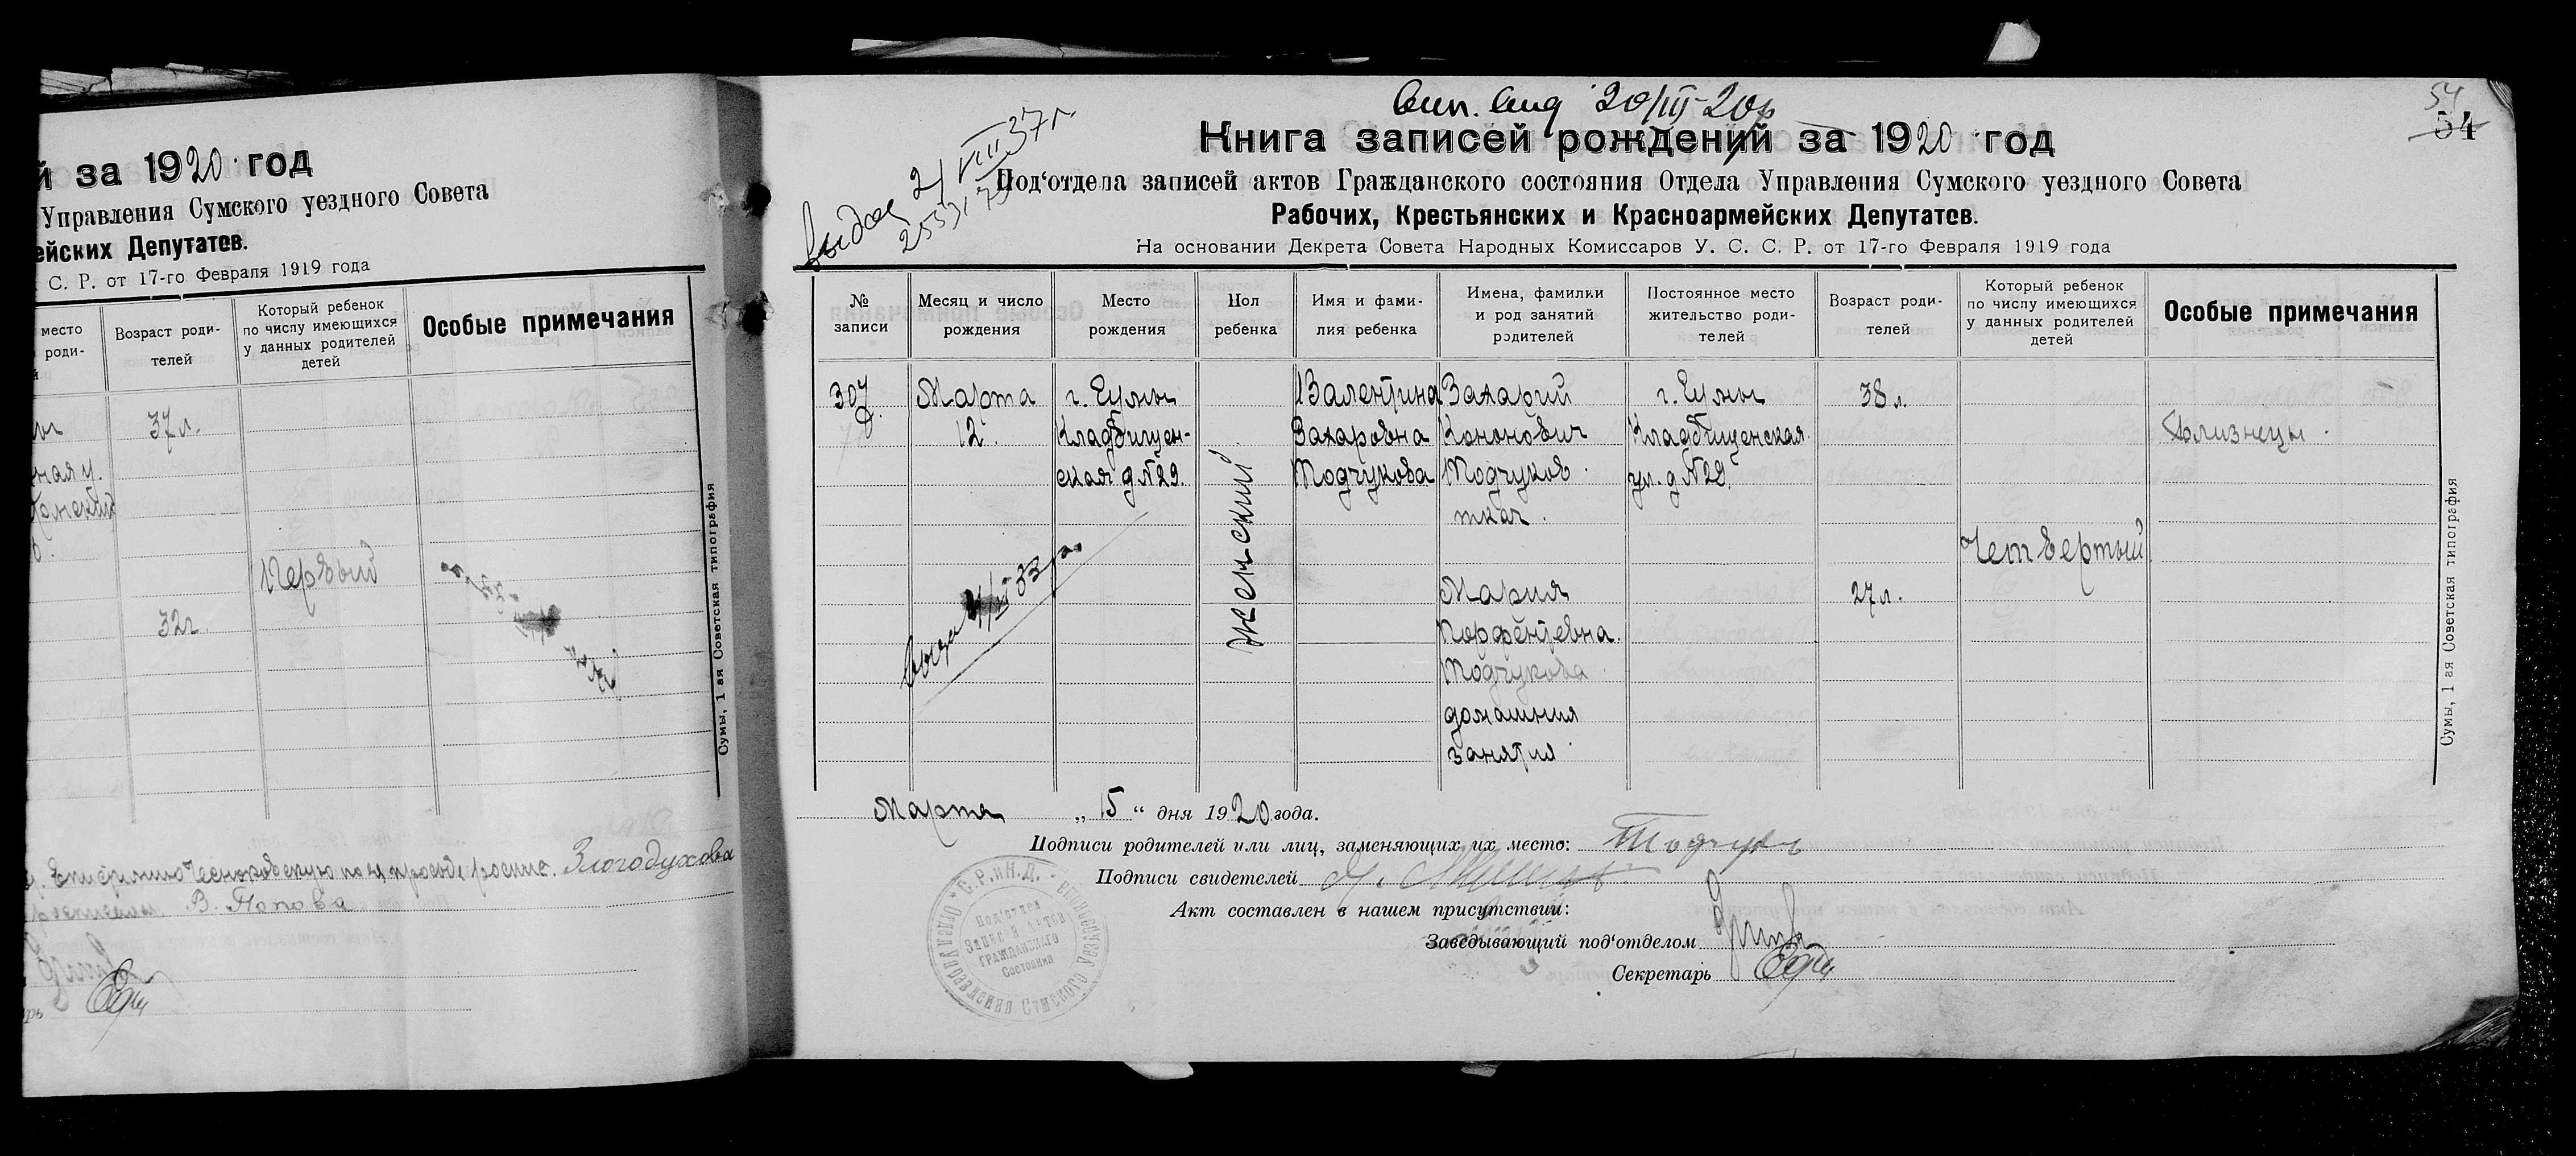 й за 1920 год
Управления Сумского уездного Совета
ейских Депутатов.
С. Р. от 17-го Февраля 1919 года
место
роди-
Возраст роди-
телей
Который ребенок
по числу имеющихся
у данных родителей
детей
Особые примечания
37 л.
ная у.
Первый
32 г.
Сумы, 1 ая Советская типография
Злогодухова
В. Попова
54
54
20/III-20 р
Книга записей рождений за 1920 год
Под'отдела записей актов Гражданского состояния Отдела Управления Сумского уездного Совета
Рабочих, Крестьянских и Красноармейских Депутатов.
На основании Декрета Совета Народных Комиссаров У. С. С. Р. от 17-го Февраля 1919 года
Выдан 21 VIII 37 г.
№
записи
Месяц и число
рождения
Место
рождения
Пол
ребенка
Имя и фами-
лия ребенка
Имена, фамилии
и род занятий
родителей
Постоянное место
жительство роди-
телей
Возраст роди-
телей
Который ребенок
по числу имеющихся
у данных родителей
детей
Особые примечания
307
Марта
12.
г. Сумы
Кладбищен-
ская д №29.
женский
Валентина
Захаровна
Подчукова
Захарий
Кононович
Подчуков
ткач.
Мария
Порфентевна
Подчукова
домашния
занятия
г. Сумы
Кладбищенская
ул. д №29.
38 л.
27 л.
Четвертый
Близнецы.
Сумы, 1 ая Советская типография
Марта „ 15 “ дня 1920 года.
Подписи родителей или лиц, заменяющих их место:
Подписи свидетелей
Акт составлен в нашем присутствии:
Заведывающий под'отделом
Секретарь
Под'отдел
Записи Актов
Гражданского
Состояния